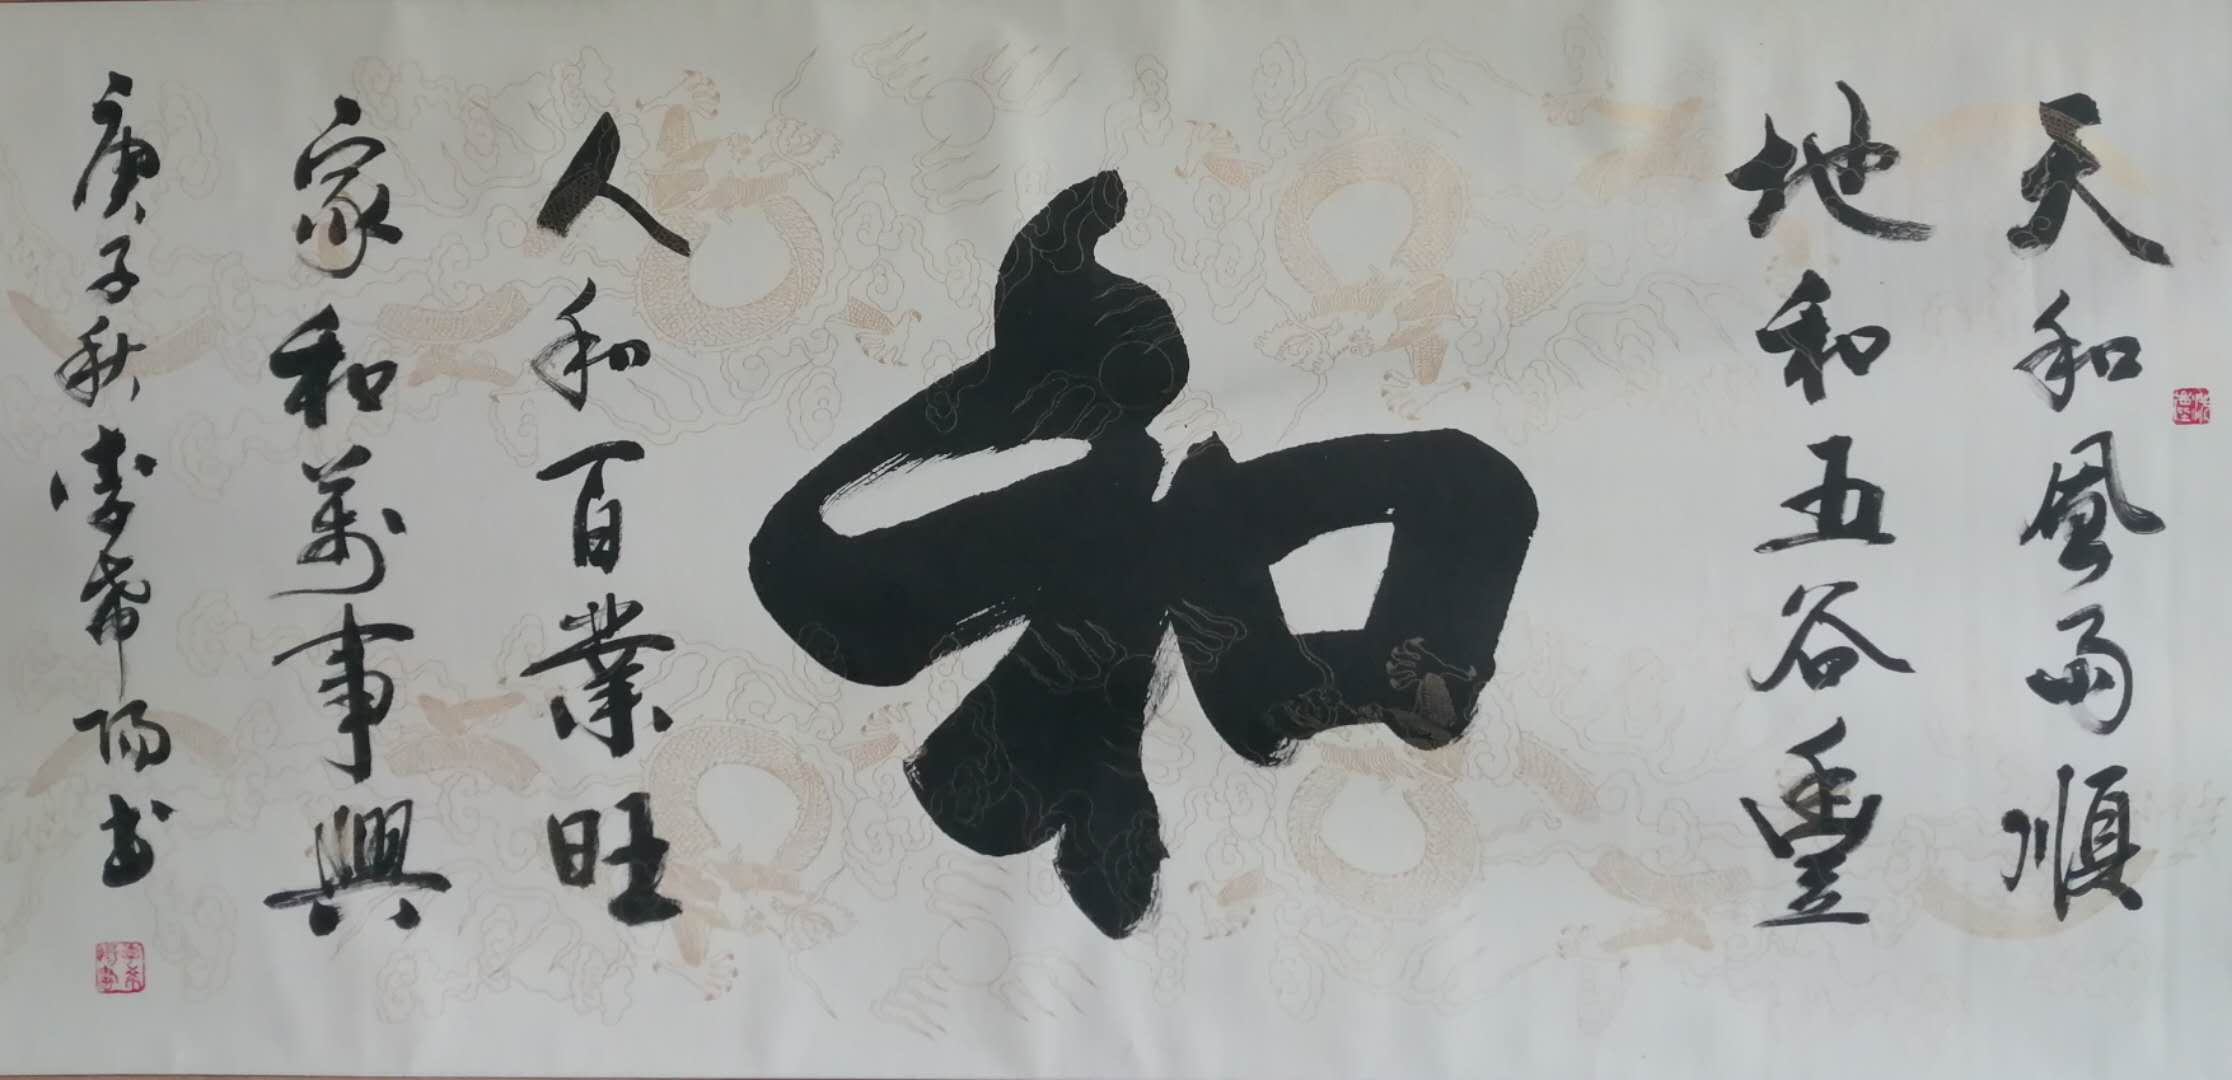 天和風雨順
地和五谷豐
和
人和百業旺
家和萬事興
庚子秋李希陽书